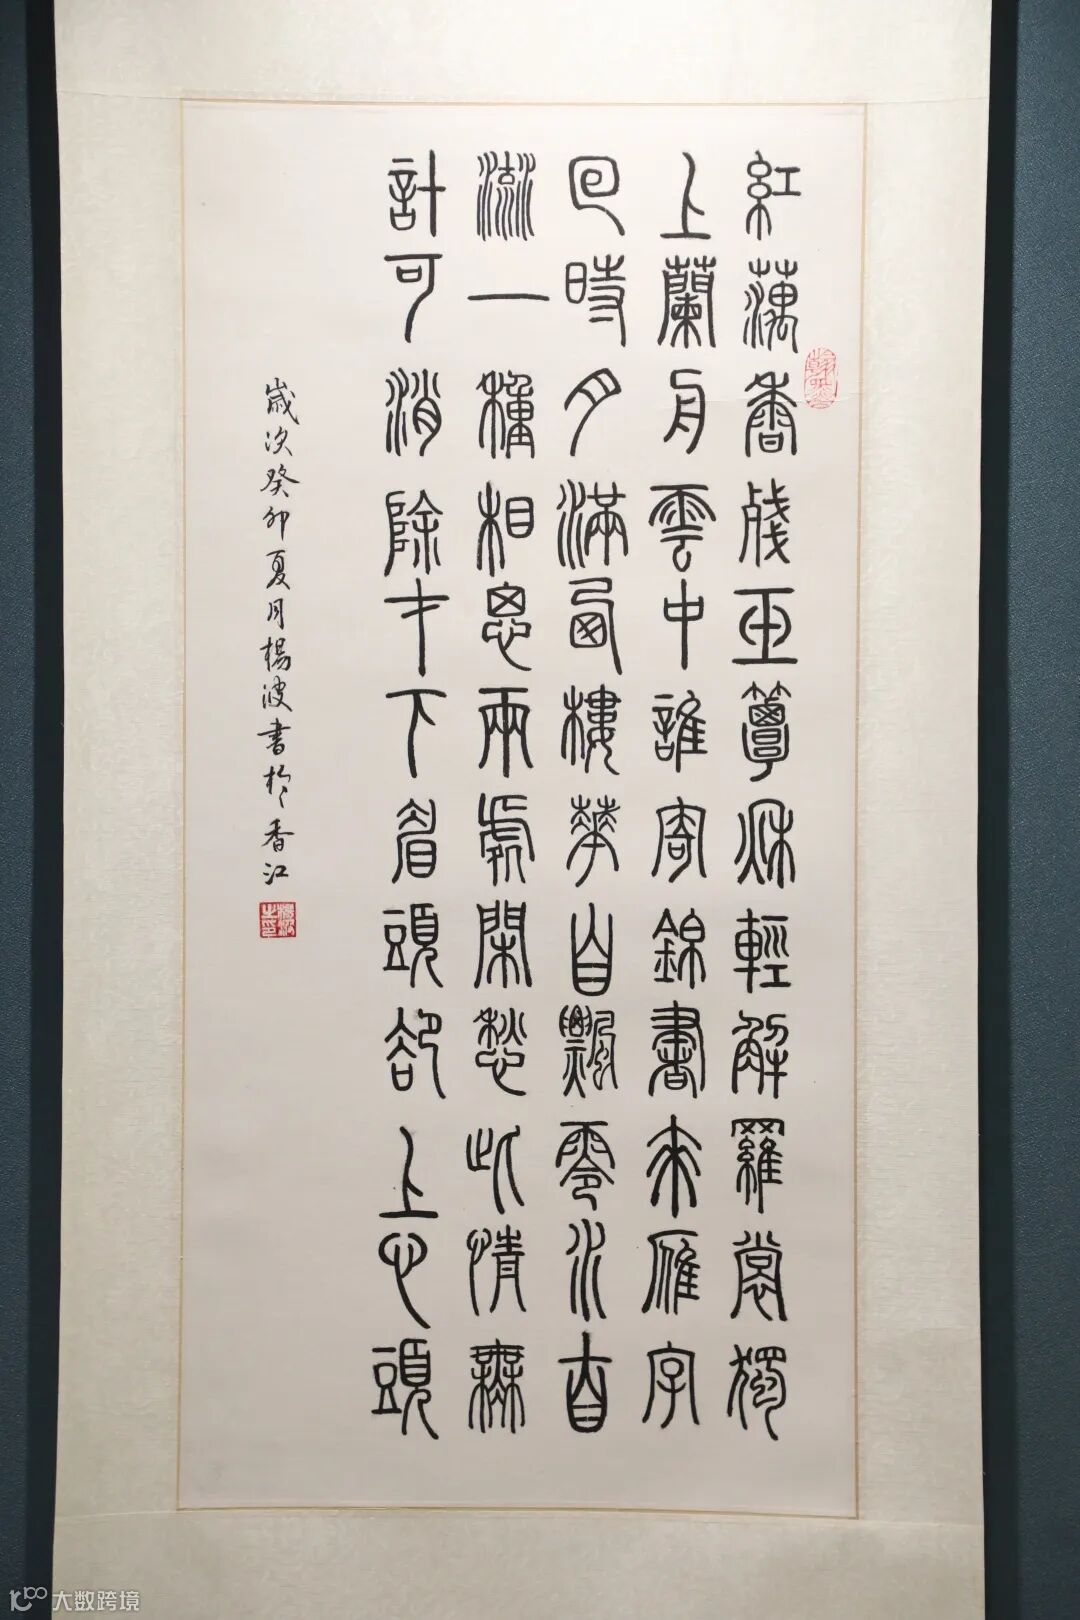 紅藕香殘玉簟秋輕解羅裳獨
上蘭舟雲中誰寄錦書來雁字
回時月滿西樓華自飄零水自
流一種相思兩處閑愁此情無
計可消除才下眉頭卻上心頭
歲次癸卯夏月楊波書於香江
楊波之印
大数跨境